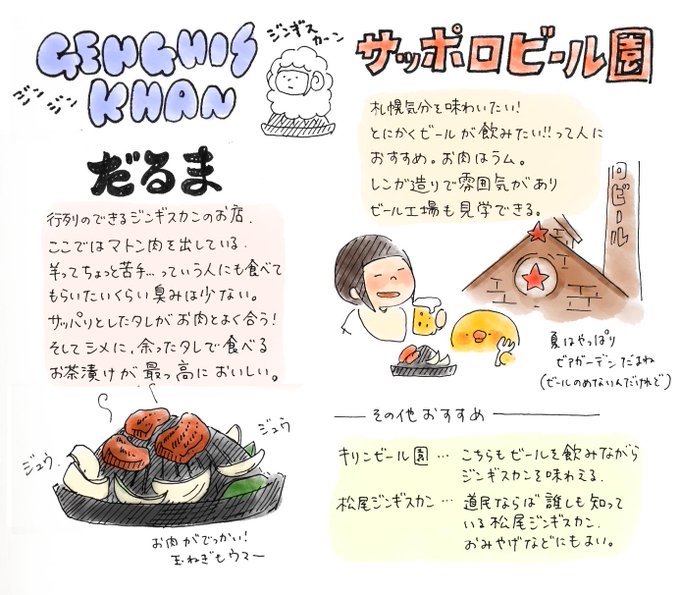 GENGHIS
KHAN
ジンジン
ジンギスカーン
だるま
行列のできるジンギスカンのお店.
ここではマトン肉を出している.
羊ってちょっと苦手…っていう人にも食べて
もらいたいくらい臭みは少ない。
サッパリとしたタレがお肉とよく合う!
そしてシメに、余ったタレで食べる
お茶漬けが最っ高においしい。
ジュウ
ジュウ.
お肉がでっかい!
玉ねぎもウマー
サッポロビール園
札幌気分を味わいたい!
とにかくビールが飲みたい!!って人に
おすすめ。お肉はラム。
レンが造りで雰囲気があり
ビール工場も見学できる。
ロビール
夏はやっぱり
ビアガーデンだよね
(ビールのめないんだけれど)
その他おすすめ
キリンビール園… こちらもビールを飲みながら
ジンギスカンを味わえる.
松尾ジンギスカン… 道民ならば誰しも知って
いる松尾ジンギスカン.
おみやげなどにもよい.